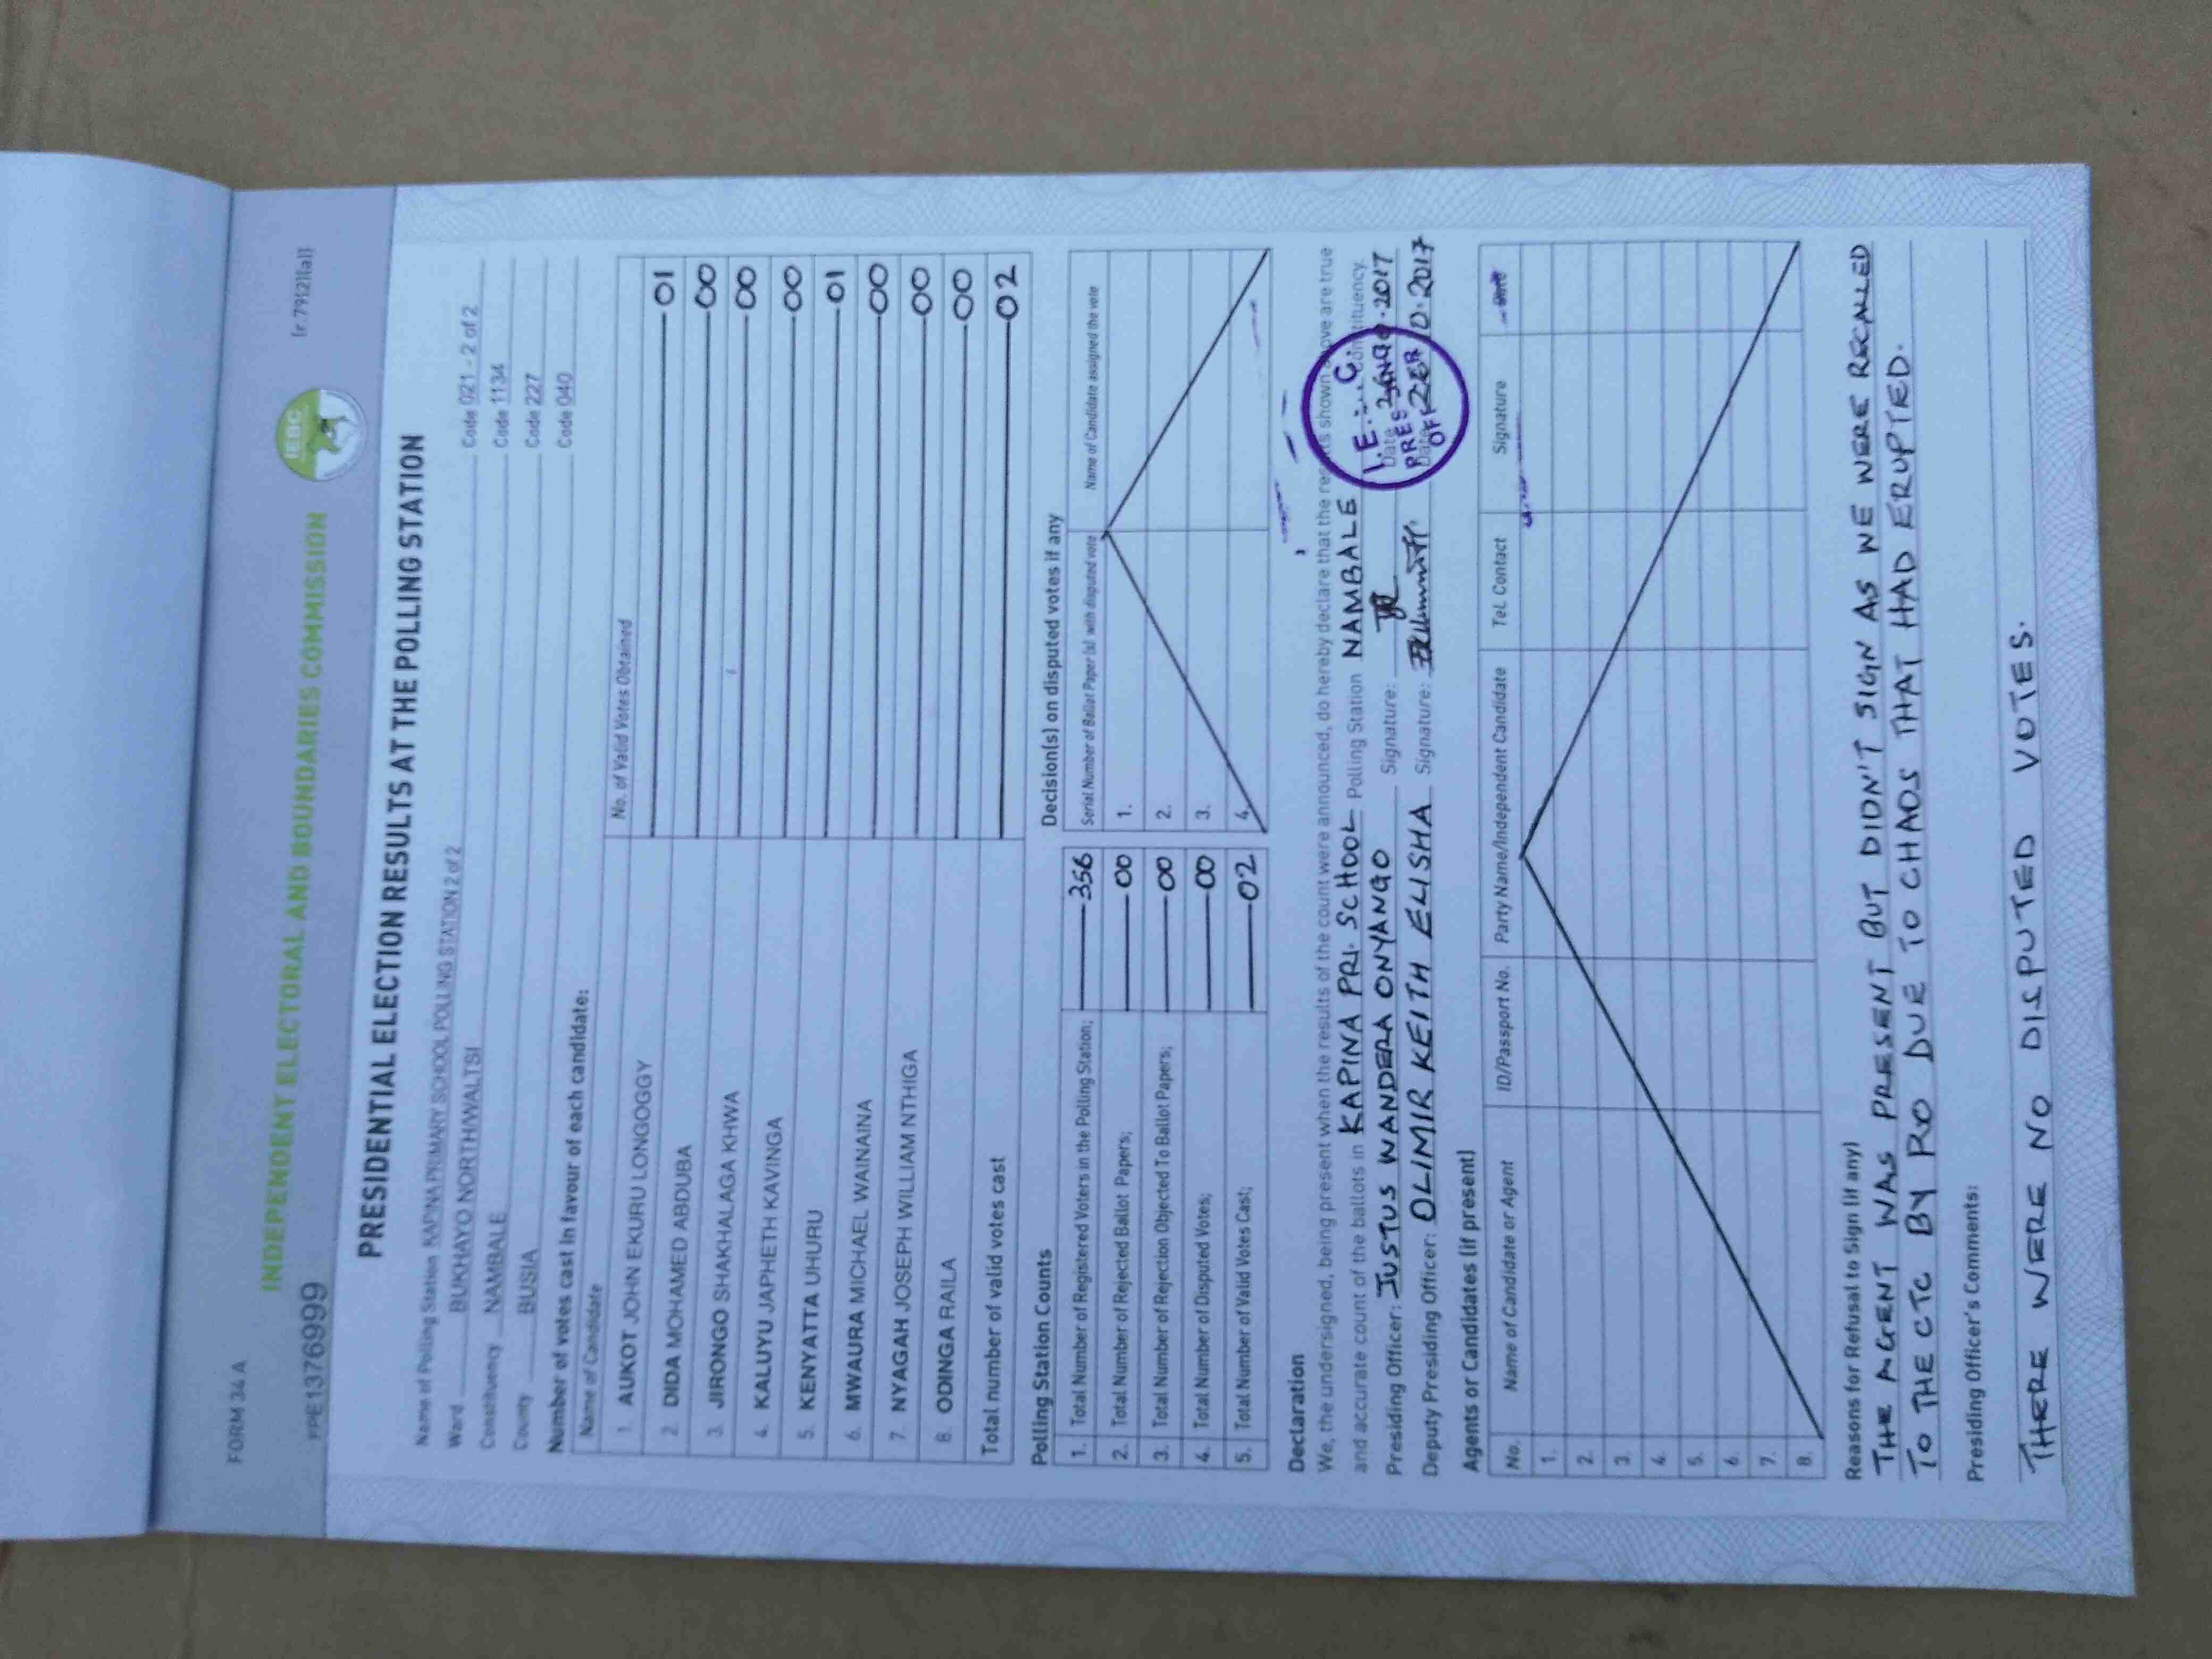 FORM 34 A
[r.79(2)(a)]
INDEPENDENT ELECTORAL AND BOUNDARIES COMMISSION
IEBC
PE1376999
PRESIDENTIAL ELECTION RESULTS AT THE POLLING STATION
Name of Polling Station KAPINA PRIMARY SCHOOL POLLING STATION 2 of 2 Code 021 - 2 of 2
Ward BUKHAYO NORTH/WALTSI Code 1134
Constituency NAMBALE Code 227
County BUSIA Code 040
Number of votes cast in favour of each candidate:
Name of Candidate No. of Valid Votes Obtained
1. AUKOT JOHN EKURU LONGOGGY 01
2. DIDA MOHAMED ABDUBA 00
3. JIRONGO SHAKHALAGA KHWA 00
4. KALUYU JAPHETH KAVINGA 00
5. KENYATTA UHURU 01
6. MWAURA MICHAEL WAINAINA 00
7. NYAGAH JOSEPH WILLIAM NTHIGA 00
8. ODINGA RAILA 00
Total number of valid votes cast 02
Polling Station Counts
1. Total Number of Registered Voters in the Polling Station; 356
2. Total Number of Rejected Ballot Papers; 00
3. Total Number of Rejection Objected To Ballot Papers; 00
4. Total Number of Disputed Votes; 00
5. Total Number of Valid Votes Cast; 02
Decision(s) on disputed votes if any
Serial Number of Ballot Paper (s) with disputed vote Name of Candidate assigned the vote
1.
2.
3.
4.
Declaration
We, the undersigned, being present when the results of the count were announced, do hereby declare that the results shown above are true
and accurate count of the ballots in KAPINA PRI. SCHOOL Polling Station NAMBALE Constituency.
Presiding Officer: JUSTUS WANDERA ONYANGO Signature: Date 2017
Deputy Presiding Officer: OLIMIR KEITH ELISHA Signature: Date 2017
I.E.B.C.
Agents or Candidates (if present)
No. Name of Candidate or Agent ID/Passport No. Party Name/Independent Candidate Tel. Contact Signature Date
1.
2.
3.
4.
5.
6.
7.
8.
Reasons for Refusal to Sign (if any)
THE AGENT WAS PRESENT BUT DIDN'T SIGN AS WE WERE RECALLED
TO THE CTC BY RO DUE TO CHAOS THAT HAD ERUPTED.
Presiding Officer's Comments:
THERE WERE NO DISPUTED VOTES.